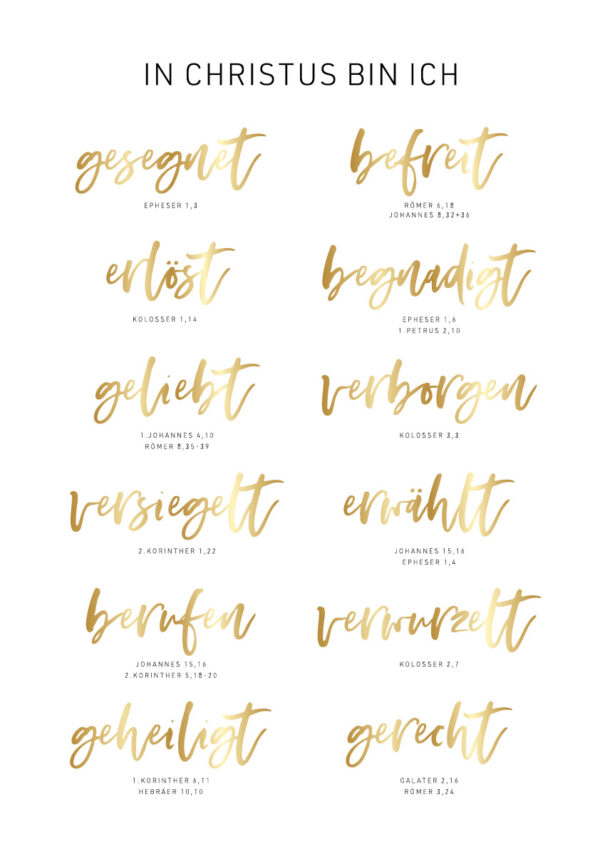 IN CHRISTUS BIN ICH
gesegnet
EPHESER 1,3
befreit
RÖMER 6,18
JOHANNES 8,32+36
erlöst
KOLOSSER 1,14
begnadigt
EPHESER 1,6
1.PETRUS 2,10
geliebt
1.JOHANNES 4,10
RÖMER 8,35-39
verborgen
KOLOSSER 3,3
versiegelt
2.KORINTHER 1,22
erwählt
JOHANNES 15,16
EPHESER 1,4
berufen
JOHANNES 15,16
2.KORINTHER 5,18-20
verwurzelt
KOLOSSER 2,7
geheiligt
1.KORINTHER 6,11
HEBRÄER 10,10
gerecht
GALATER 2,16
RÖMER 3,24